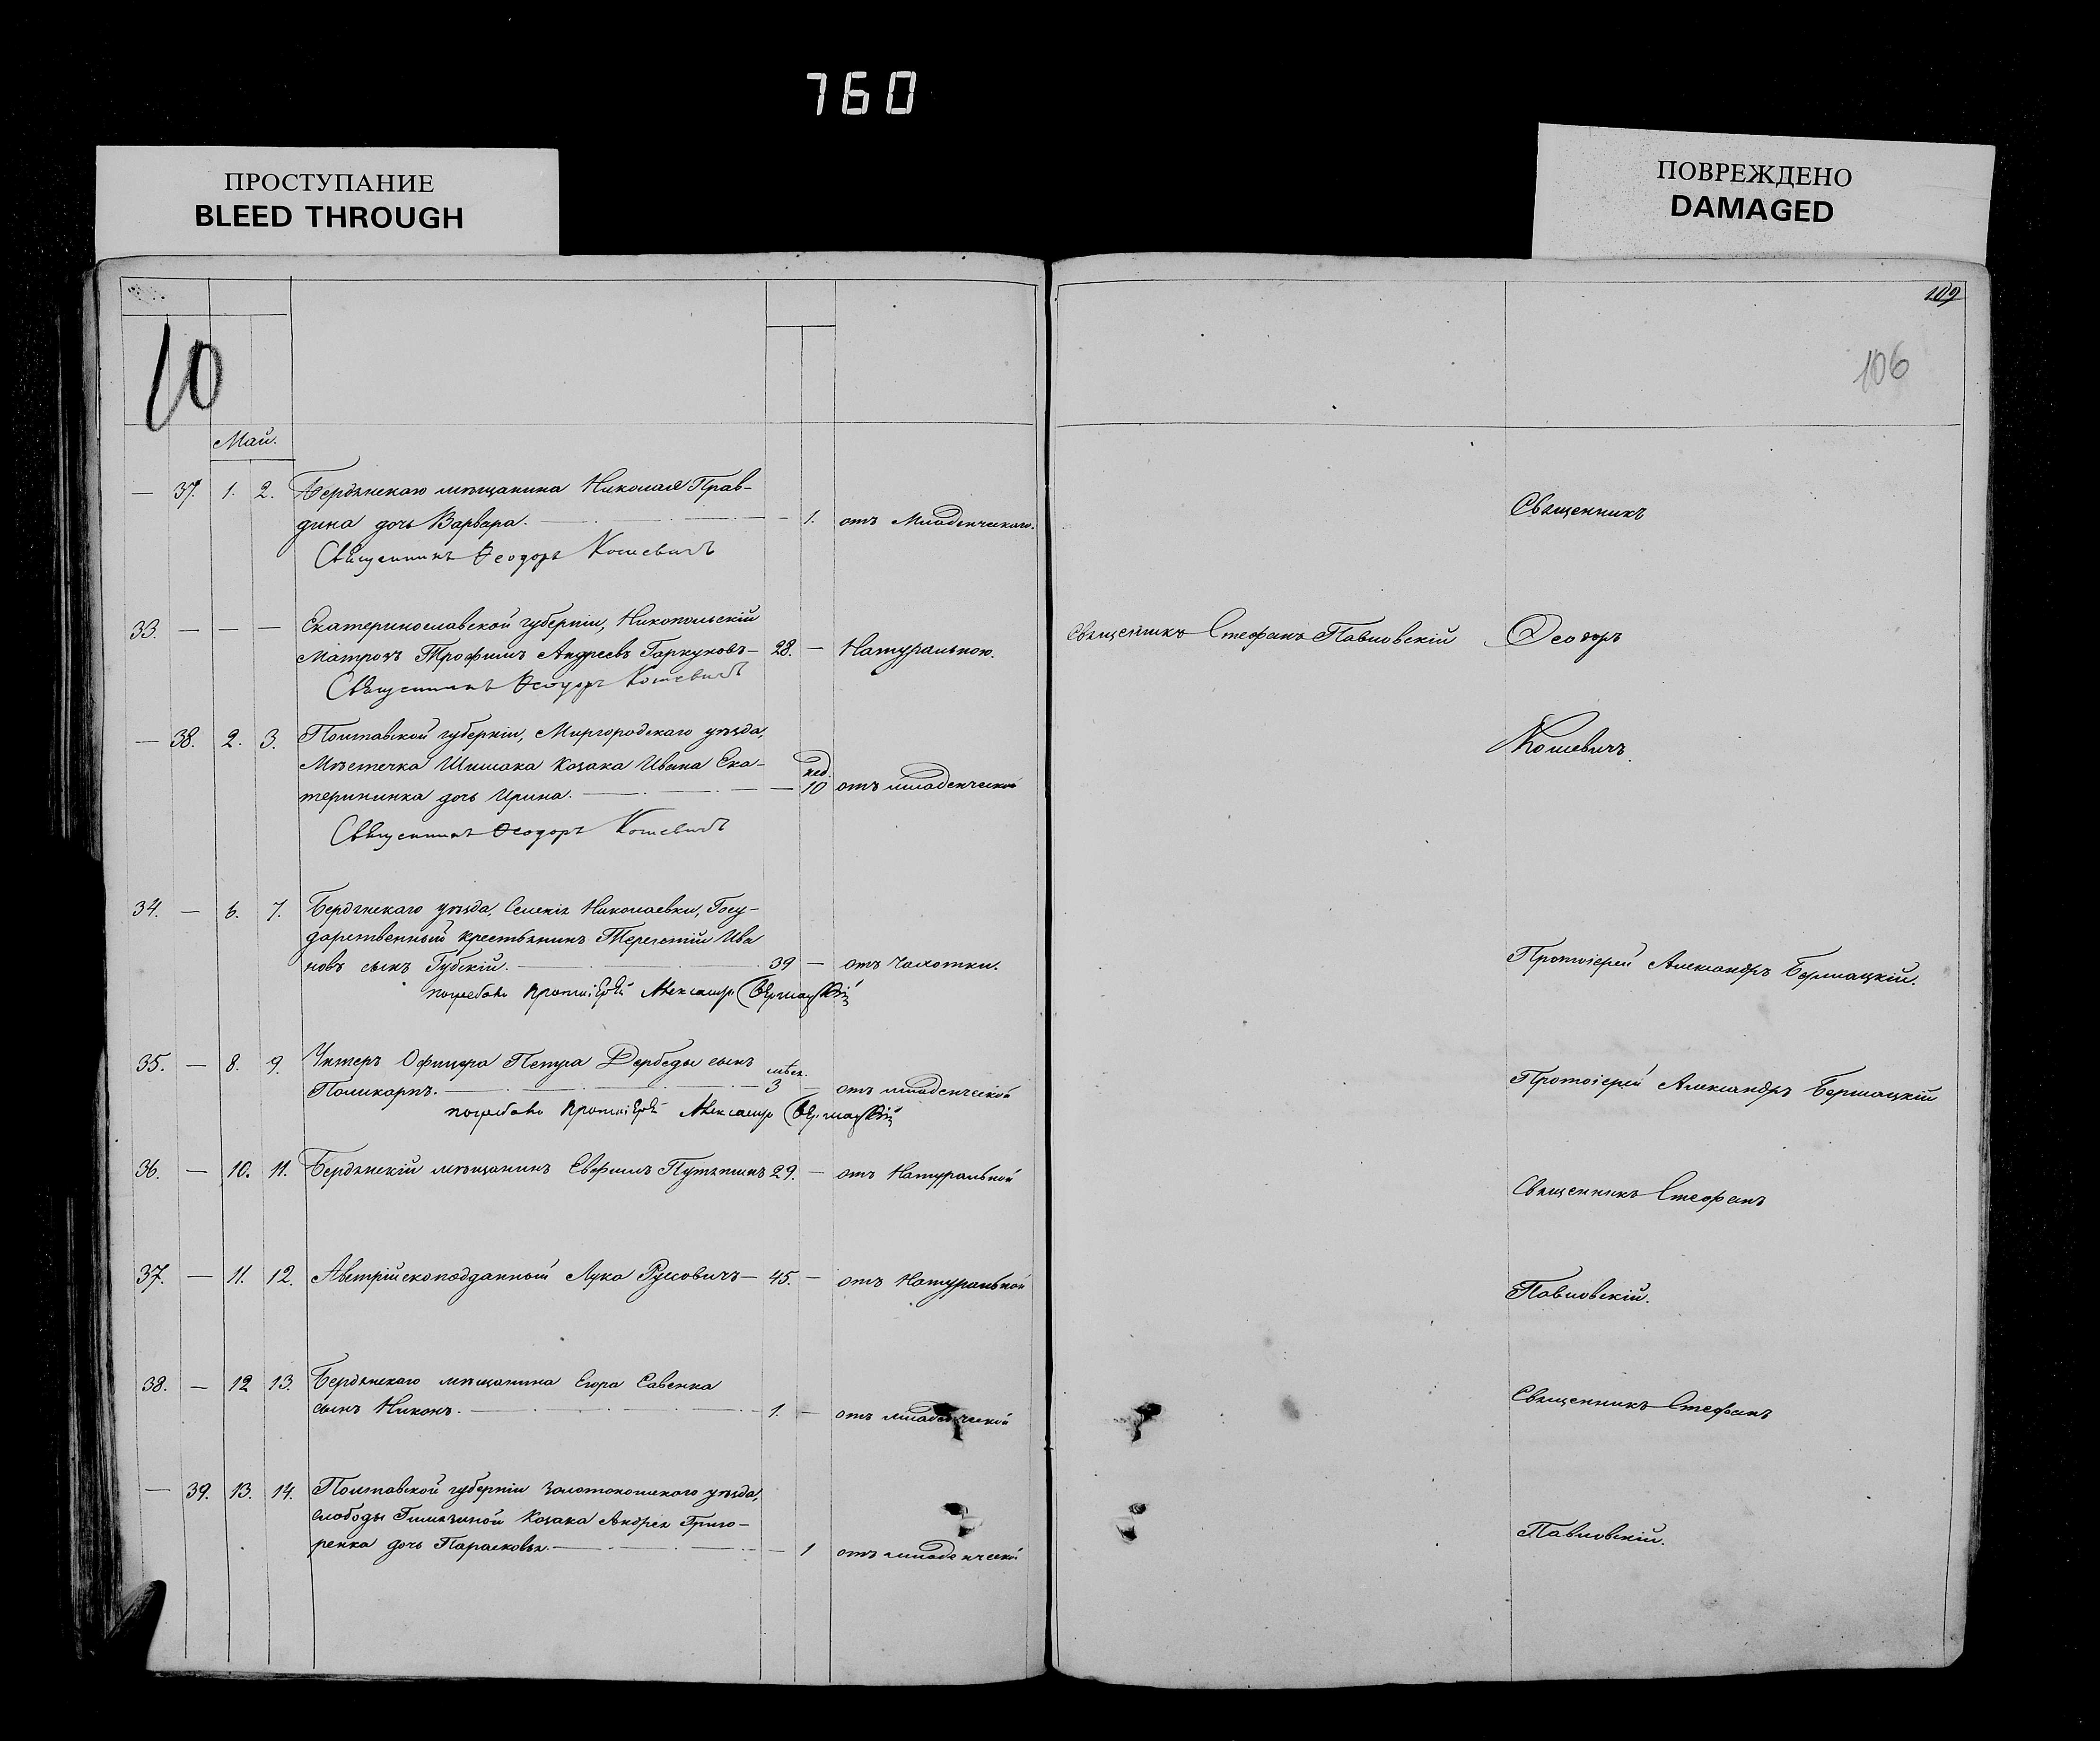 760
ПРОСТУПАНИЕ
BLEED THROUGH
ПОВРЕЖДЕНО
DAMAGED
109
10
106
Май.
— 37. 1. 2. Бердянскаго мѣщанина Николая Прав-
дина дочь Варвара. — 1. отъ Младенческаго.
Священникъ Ѳеодоръ Кошевичъ
Священникъ
33. — — — Екатеринославской губерніи, Никопольскій
Матрозъ Трофимъ Андреевъ Гаркуновъ— 28. — Натуральною.
Священникъ Стефанъ Павловскій
Ѳеодоръ
Священникъ Ѳеодоръ Кошевичъ
— 38. 2. 3. Полтавской губерніи, Миргородскаго уѣзда,
Мѣстечка Шишака Козака Ивана Ека-
терининка дочь Ирина. — нед. 10 отъ младенческой
Кошевичъ.
Священникъ Ѳеодоръ Кошевичъ
34. — 6. 7. Бердянскаго уѣзда, Селенія Николаевки, Госу-
дарственный крестьянинъ Терентій Ива
новъ сынъ Губскій. — 39 — отъ Чахотки.
погребалъ Протоіерей Александръ
Протоіерей Александръ
35. — 8. 9. Унтеръ Офицера Петра Дербеды сынъ
Поликарпъ. — мѣс. 3 — отъ младенческой
погребалъ Протоіерей Александръ
Протоіерей Александръ
36. — 10. 11. Бердянскій мѣщанинъ Евфимъ 29. — отъ Натуральной
Священникъ Стефанъ
37. — 11. 12. Австрійскоподданный Лука Руссовичъ— 45. — отъ Натуральной
Павловскій.
38. — 12 13. Бердянскаго мѣщанина Егора Савенка
сынъ Никонъ. — 1. — отъ младенческой
Священникъ Стефанъ
— 39. 13. 14. Полтавской губерніи Золотоношскаго уѣзда,
слободы Козака Андрея Григо-
ренка дочь Парасковья. — 1 отъ младенческой
Павловскій.